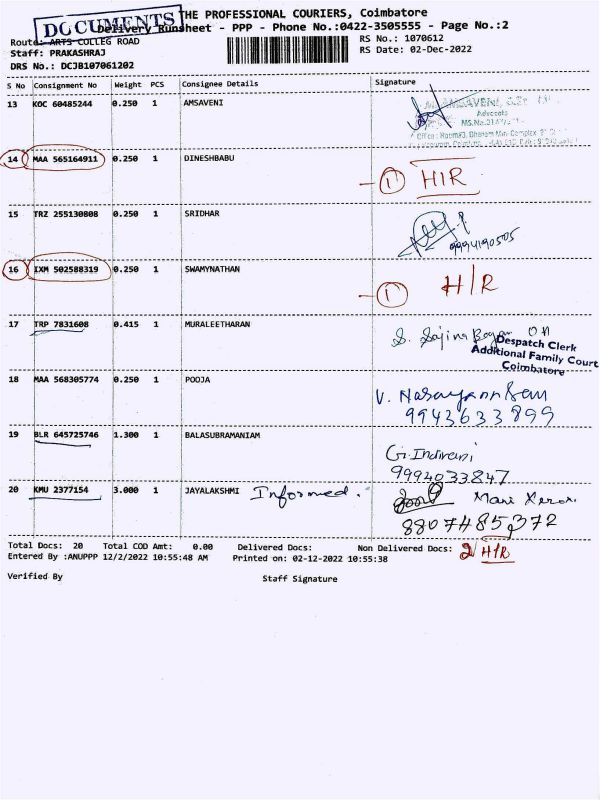 DOCUMENTS
THE PROFESSIONAL COURIERS, Coimbatore
Delivery Runsheet - PPP - Phone No.:0422-3505555 - Page No.:2
Route: ARTS COLLEG ROAD
RS No.: 1070612
Staff: PRAKASHRAJ
RS Date: 02-Dec-2022
DRS No.: DCJB107061202
S No Consignment No Weight PCS Consignee Details Signature
13 KOC 60485244 0.250 1 AMSAVENI
Advocate
14 MAA 565164911 0.250 1 DINESHBABU
- 1 H/R
15 TRZ 255130808 0.250 1 SRIDHAR
9994190505
16 IXM 502588319 0.250 1 SWAMYNATHAN
- 1 H/R
17 TRP 7831608 0.415 1 MURALEETHARAN
Despatch Clerk
Additional Family Court
Coimbatore
18 MAA 568305774 0.250 1 POOJA
9943633899
19 BLR 645725746 1.300 1 BALASUBRAMANIAM
G. Indirani
9994033847
20 KMU 2377154 3.000 1 JAYALAKSHMI Informed.
8807485372
Total Docs: 20 Total COD Amt: 0.00 Delivered Docs: Non Delivered Docs: 2/ H/R
Entered By :ANUPPP 12/2/2022 10:55:48 AM Printed on: 02-12-2022 10:55:38
Verified By Staff Signature